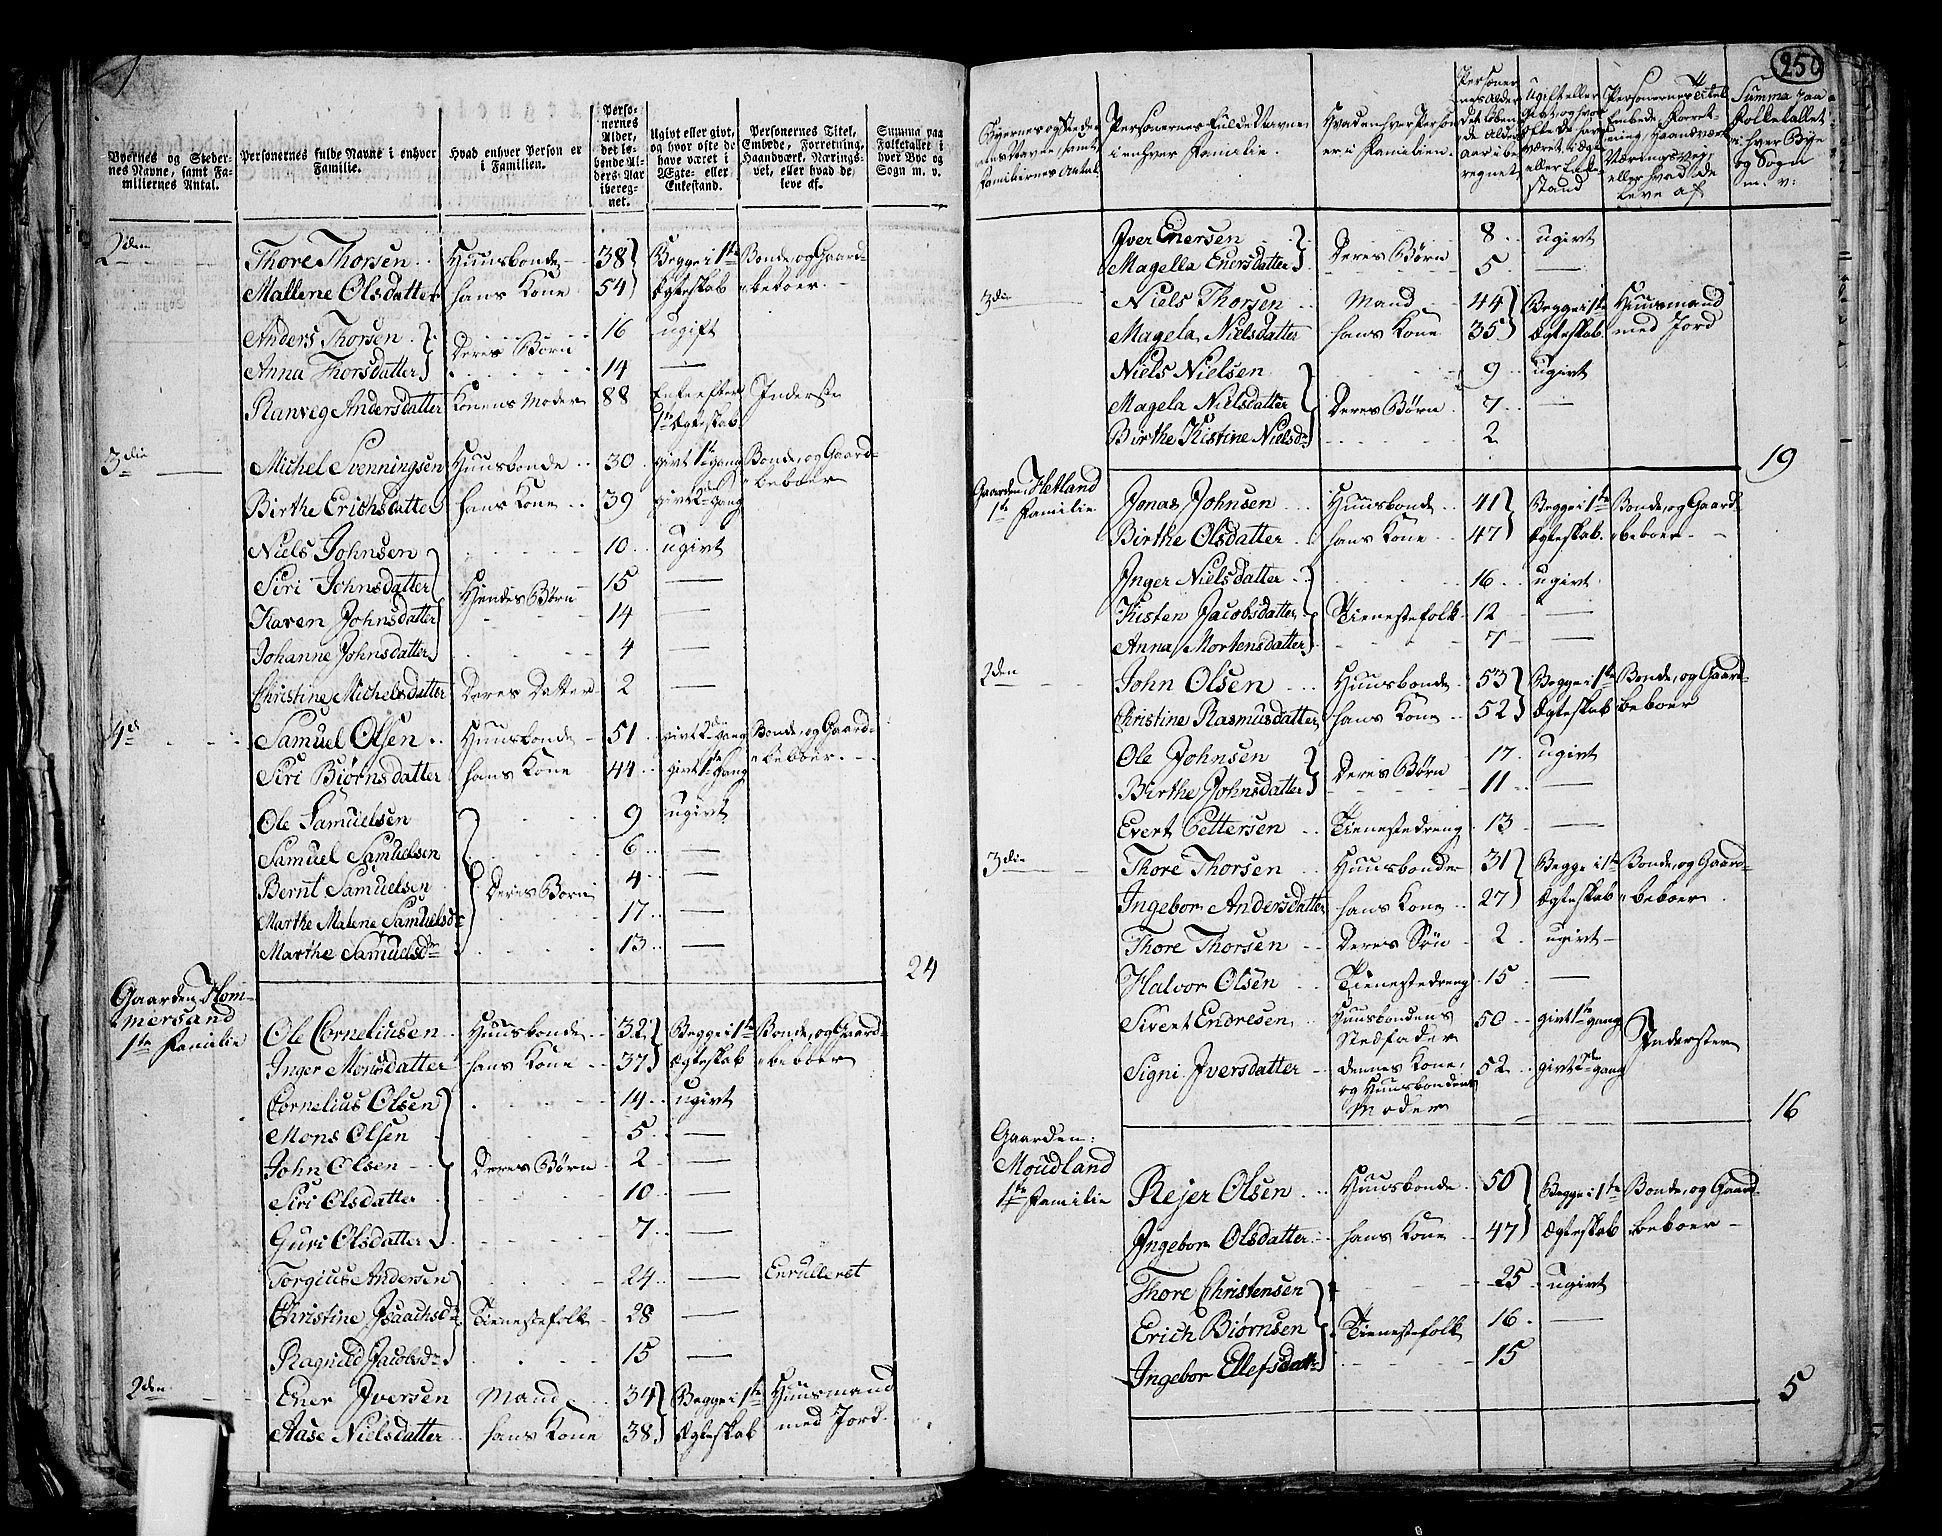 Byernes og Steder-
nes Navne, samt Fa-
miliernes Antal.
Personernes fulde Navne i enhver
Familie.
Hvad enhver Person er
i Familien.
Perso-
nernes
Alder,
det lø-
bende Al-
ders-Aar
ibereg-
net.
Ugivt eller givt,
og hvor ofte de
have været i
Ægte- eller
Enkestand.
Personernes Titel,
Embede, Forretning,
Haandværk, Nærings-
vei, eller hvad de
leve af.
Summa paa
Folketallet i
hver Bye og
Sogn m. v.
2den Thore Thorsen Huusbonde 38 Begge i 1te Bonde, og Gaard-
Mallene Olsdatter hans Kone 54 Ægteskab beboer.
Anders Thorsen 16 ugift
Deres Børn
Anna Thorsdatter 14 —
Ranveg Andersdatter Konens Moder 88 Enke efter Inderste
1te Ægteskab
3die Michel Svenningsen Huusbonde 30 givt 1te gang Bonde, og Gaard-
Birthe Erichsdatter hans Kone 39 givt 2den gang beboer
Niels Johnsen 10 ugivt
Siri Johnsdatter 15 —
Hendes Børn
Karen Johnsdatter 14 —
Johanne Johnsdatter 4 —
Christine Michelsdatter Deres Datter 2 —
4de Samuel Olsen Huusbonde 51 givt 2den gang Bonde, og Gaard-
Siri Biørnsdatter hans Kone 44 givt 1te gang beboer.
Ole Samuelsen 9 ugivt
Samuel Samuelsen 6 —
Bernt Samuelsen Deres Børn 4 —
Marthe Malene Samuelsdr 17 —
Marthe Samuelsdr 13 —
24
Gaarden Hom-
mersand
1te Familie
Ole Corneliusen Huusbonde 32 Begge i 1te Bonde, og Gaard-
Inger Monsdatter hans Kone 37 Ægteskab beboer
Cornelius Olsen 14 ugivt
Mons Olsen 5 —
John Olsen Deres Børn 2 —
Siri Olsdatter 10 —
Guri Olsdatter 7 —
Torgius Andersen 24 — Enrulleret
Christine Isaachsdr Tienestefolk 28 —
Ragnild Jacobsdr 15 —
2den Ener Iversen Mand 34 Begge i 1te Huusmand
Aase Nielsdatter hans Kone 38 Ægteskab med Jord.
250
Byernes og Steder-
nes Navne, samt
Familiernes Antal.
Personernes fulde Navne
i enhver Familie.
Hvad enhver Person
er i Familien.
Personer-
nes Alder
det løben-
de Alders
aar i be-
regnet
Ugift eller
Givt, og hvor
Ofte de have
været i Ægte
eller Enke-
stand
Personernes Titel
Embede Forret-
ning, Haandværk
Næringsvej,
eller hvad de
leve af
Summa paa
Folketallet
i hver Bye
og Sogn
m. v:
Iver Enersen 8 ugivt
Deres Børn
Magella Enersdatter 5 —
3die Niels Thorsen Mand 44 Begge i 1te Huusmand
Magela Nielsdatter hans Kone 35 Ægteskab. med Jord
Niels Nielsen 9 ugivt
Magela Nielsdatter Deres Børn 7 —
Birthe Kistine Nielsdr 2
19
Gaarden Hetland
1te Familie
Jonas Johnsen Huusbonde 41 Begge i 1te Bonde, og Gaard-
Birthe Olsdatter hans Kone 47 Ægteskab. beboer
Inger Nielsdatter 16 ugivt
Kisten Jacobsdatter Tienestefolk 12 —
Anna Mortensdatter 7 —
2den John Olsen Huusbonde 53 Begge i 1te Bonde, og Gaard-
Christine Rasmusdatter hans Kone 52 Ægteskab beboer
Ole Johnsen 17 ugivt
Deres Børn
Birthe Johnsdatter 11 —
Evert Pettersen Tienestedreng 13 —
3die Thore Thorsen Huusbonde 31 Begge i 1te Bonde, og Gaard-
Ingebor Andersdatter hans Kone 27 Ægteskab beboer
Thore Thorsen Deres Søn 2 ugivt
Halvor Olsen Tienestedreng 15 —
Sivert Endresen Huusbondens 50 givt 1te gang
Stedfader Inderster
Signi Iversdatter dennes Kone, 52 givt 2den gang
og Huusbondens
Moder
16
Gaarden:
Moudland
1te Familie
Rejer Olsen Huusbonde 50 Begge i 1te Bonde, og Gaard-
Ingebor Olsdatter hans Kone 47 Ægteskab beboer
Thore Christensen 25 ugivt
Erich Biørnsen Tienestefolk 16 —
Ingebor Ellefsdatr 15
5